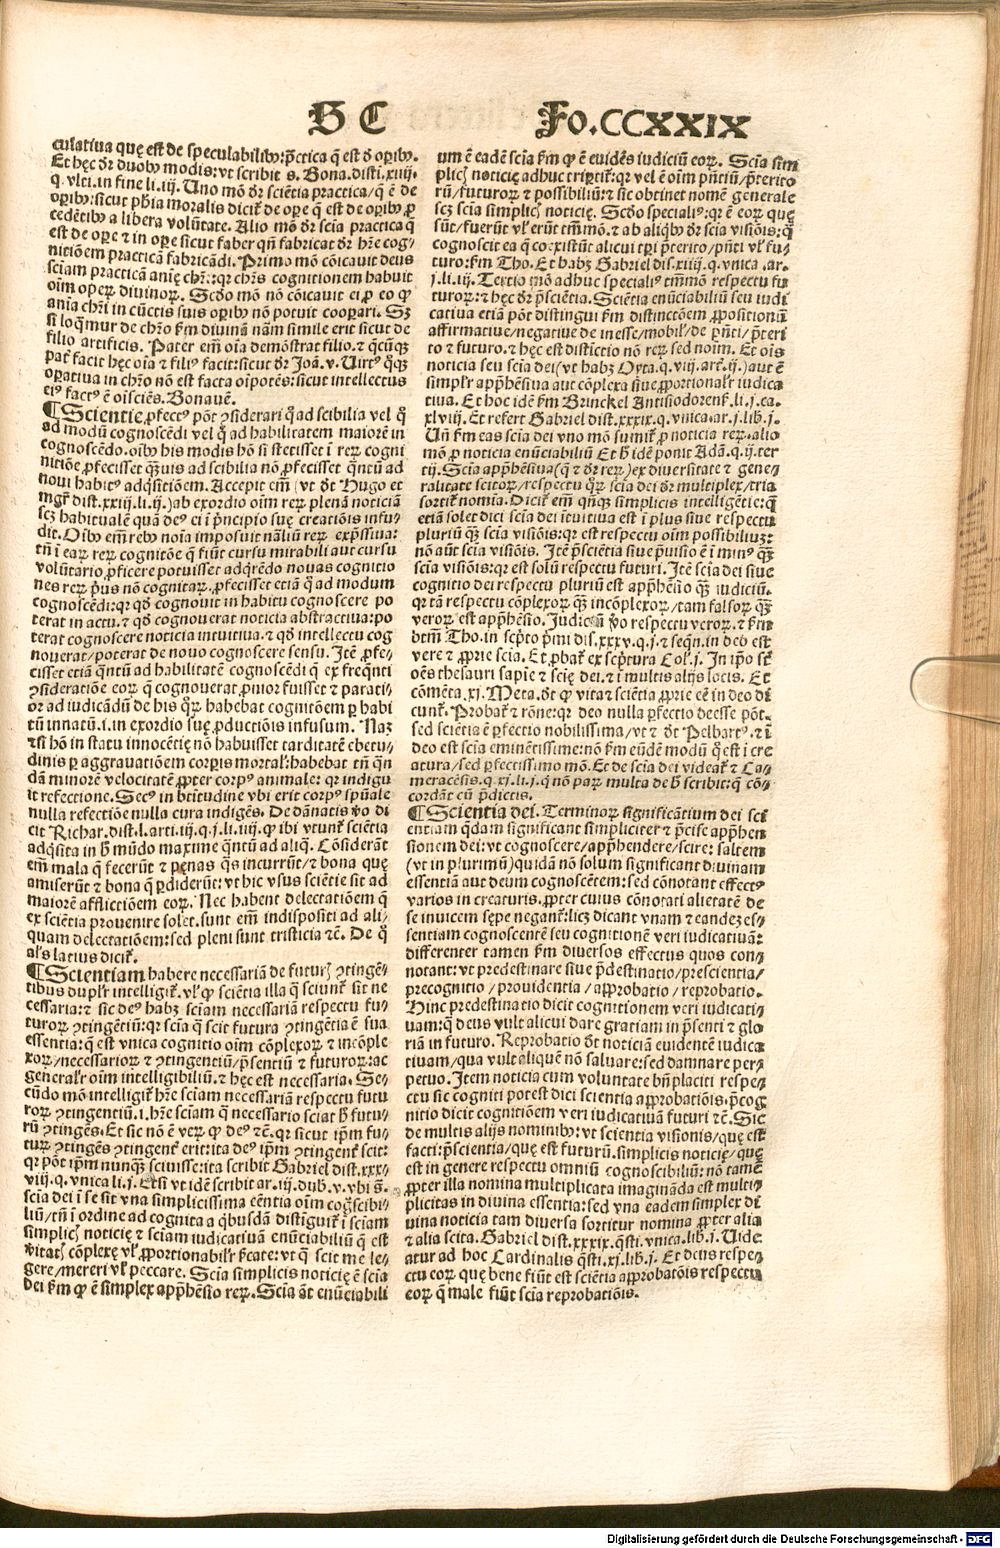 S C Fo.CCXXIX
culatiua quę est de speculabilibꝰ: p̄ctica q̄ est d̓ oꝑibꝰ.
Et hęc dr̄ duobꝰ modis: vt scribit s. Bona. disti. xiiij.
q. vlti. in fine li. iij. Uno mō dr̄ sciētia practica/ q̄ ē de
oꝑibꝰ: sicut ph̄ia moralis dicit᷑ de oꝑe q̄ est de oꝑibꝰ ꝓ
cedētibꝰ a libera volūtate. Alio mō dr̄ scīa practica q̄
est de oꝑe ⁊ in oꝑe sicut faber qn̄ fabricat dr̄ hr̄e cog-
nitiōem practicā fabricādi. Primo mō cōicauit deus
sciam practicā anię chr̄i: qꝛ chr̄s cognitionem habuit
oīm oper̄ diuinoꝝ. Scd̓o mō nō cōicauit ei ꝓ eo ꝙ
anīa chr̄i in cūctis suis oꝑibꝰ nō potuit cooꝑari. Sꝫ
si loq̄mur de chr̄o ẜm diuinā nām simile erit sicut de
filio artificis. Pater em̄ oīa demōstrat filio. ⁊ q̄cūqꝫ
pat᷑ facit hęc oīa ⁊ filiꝰ facit: sicut dr̄ Joā. v. Uirtꝰ q̄qꝫ
oꝑatiua in chr̄o nō est facta oīpotēs: sicut intellectus
eiꝰ factꝰ ē oīsciēs. Bonauē.
¶ Scientie ꝓfectꝰ pōt ꝯsiderari q̄ ad scibilia vel q̄
ad modū cognoscēdi vel q̄ ad habilitatem maiorē in
cognoscēdo. oībꝰ his modis hō si stetisset ī reꝝ cogni
nitiōe ꝓfecisset q̄ꝫuis ad scibilia nō ꝓfecisset q̄ntū ad
noui habitꝰ adq̄sitiōem. Accepit em̄ (vt dt̄ Hugo et
mgr̄ dist. xxiij. li. ij.) ab exordio oīm reꝝ plenā noticiā
scꝫ habitualē quā deꝰ ei ī p̄ncipio suę creatiōis infu-
dit. Oībꝰ em̄ rebꝰ noīa imposuit nāliū reꝝ exp̄ssiua:
tn̄ ī eaꝝ reꝝ cognitōe q̄ fiūt cursu mirabili aut cursu
volūtario ꝓficere potuisset adq̄rēdo nouas cognitio
nes reꝝ p̄us nō cognitaꝝ. ꝓfecisset etiā q̄ ad modum
cognoscēdi: qꝛ qd̓ cognouit in habitu cognoscere po
terat in actu. ⁊ qd̓ cognouerat noticia abstractiua: po
terat cognoscere noticia intuitiua. ⁊ qd̓ intellectu cog
nouerat/ poterat de nouo cognoscere sensu. Itē ꝓfe-
cisset etiā q̄ntū ad habilitatē cognoscēdi q̄ ex freq̄nti
ꝯsideratiōe eoꝝ q̄ cognouerat ꝓnior fuisset ⁊ parati-
or ad iudicādū de his q̄ꝝ habebat cognitōem ꝑ habi
tū innatū. i. in exordio suę ꝓductiōis infusum. Naꝫ
⁊ si hō in statu innocētię nō habuisset tarditatē ebetu-
dinis ꝑ aggrauatiōem corꝑis mortal: habebat tn̄ q̄n
dā minorē velocitatē ꝓpter corpꝰ animale: qꝛ indigu
it refectione. Secꝰ in bt̄itudine vbi erit corpꝰ spūale
nulla refectiōe nulla cura indigēs. De dānatis v̓o di
cit Richar. dist. l. arti. iij. q. j. li. iiij. ꝙ ibi vtunt᷑ sciētia
adq̄sita in h̄ mūdo maxime q̄ntū ad aliq̄. Cōsiderāt
em̄ mala q̄ fecerūt ⁊ pęnas q̄s incurrūt/ ⁊ bona quę
amiserūt ⁊ bona q̄ ꝑdiderūt: vt hic vsus sciētie sit ad
maiorē afflictiōem eoꝝ. Nec habent delectatiōem q̄
ex sciētia prouenire solet. sunt em̄ indispositi ad ali-
quam delectatiōem: sed pleni sunt tristicia ⁊c̄. De q̄
al's latius dicit᷑.
¶ Scientiam habere necessariā de futur̄ ꝯtingē-
tibus duplr̄ intelligit᷑. vl' ꝙ sciētia illa q̄ sciunt᷑ sit ne
cessaria: ⁊ sic deꝰ habꝫ sciam necessariā respectu fu-
turoꝝ ꝯtingētiū: qꝛ scīa q̄ scit futura ꝯtingētia ē sua
essentia: q̄ est vnica cognitio oīm cōplexoꝝ ⁊ incōple
xoꝝ/ necessarioꝝ ⁊ ꝯtingentiū/ p̄sentiū ⁊ futuroꝝ: ac
generalr̄ oīm intelligibiliū. ⁊ hęc est necessaria. Se-
cūdo mō intelligit᷑ hr̄e sciam necessariā respectu futu
roꝝ ꝯtingentiū. i. hr̄e sciam q̄ necessario sciat h̄ futu-
rū ꝯtingēs. Et sic nō ē veꝝ ꝙ deꝰ ⁊c̄. qꝛ sicut ip̄m fu-
tuꝝ ꝯtingēs ꝯtingent᷑ erit: ita deꝰ ip̄m ꝯtingent᷑ scit:
qꝛ pōt ip̄m nunqꝫ sciuisse: ita scribit Gabriel dist. xxx-
viij. q. vnica li. j. Etsi vt idē scribit ar. iij. dub. v. vbi s̄.
scia dei ī se sit vna simplicissima eēntia oīm cog̓scibi-
liū/ tn̄ ī ordine ad cognita a q̄busdā distīguit᷑ ī sciam
simplic̄ noticię ⁊ sciam iudicatiuā enūciabiliū q̄ est
v̓itat̄ cōplexę vl' ꝓportionabilr̄ ẜcate: vt q̄ scit me le-
gere/ mereri vl' peccare. Scia simplicis noticię ē scia
dei ẜm ꝙ ē simplex app̄hēsio reꝝ. Scia āt enūciabili
um ē eadē scīa ẜm ꝙ ē euidēs iudiciū eoꝝ. Scīa sim
plic̄ noticię adhuc tripꝛtit᷑: qꝛ vel ē oīm pn̄tiū/ p̄terito
rū/ futuroꝝ ⁊ possibiliū: ⁊ sic obtinet nomē generale
scꝫ scia simplic̄ noticię. Scd̓o specialiꝰ: qꝛ ē eoꝝ quę
sūt/ fuerūt vl' erūt tm̄mō. ⁊ ab aliqbꝰ dr̄ scia visiōis: q̄
cognoscit ea q̄ coexistūt alicui tꝑi p̄terito/ pn̄ti vl' fu-
turo: ẜm Tho. Et habꝫ Gabriel dis. xiiij. q. vnica. ar.
j. li. iij. Tertio mō adhuc specialiꝰ tm̄mō respectu fu
turoꝝ: ⁊ hęc dr̄ p̄sciētia. Sciētia enūciabiliū seu iudi
catiua etiā pōt distingui ẜm distinctōem ꝓpositionū
affirmatiue/ negatiue de inesse/ mobil'/ de pn̄ti/ p̄teri
to ⁊ futuro. ⁊ hęc est distictio nō reꝝ sed noīm. Et oīs
noticia seu scia dei (vt habꝫ Oxta. q. viij. art̄. ij.) aut ē
simplr̄ app̄hēsiua aut cōplexa siue ꝓportionalr̄ iudica
tiua. Et hoc idē ẜm Brinckel Antisiodorens̄. li. j. ca.
xlviij. Et refert Gabriel dist. xxxix. q. vnica. ar. j. lib. j.
Un̄ ẜm eas scia dei vno mō sumit᷑ ꝓ noticia reꝝ. alio
mō ꝓ noticia enūciabiliū Et h̄ idē ponit Adā. q. ij. ter
tij. Scia app̄hēsiua (q̄ ⁊ dr̄ reꝝ) ex diuersitate ⁊ gene-
ralitate scitoꝝ/ respectu q̄ꝝ scia dei dr̄ multiplex/ tria
sortit᷑ nomīa. Dicit᷑ em̄ qn̄qꝫ simplicis intelligētie: q̄
etiā solet dici scia dei ītuitiua est ī plus siue respectu
pluriū q̄ꝫ scia visiōis: qꝛ est respectu oīm possibiliuꝫ:
nō aūt scia visiōis. Itē p̄sciētia siue p̄uisio ē ī minꝰ q̄ꝫ
scia visiōis: qꝛ est solū respectu futuri. Itē scīa dei siue
cognitio dei respectu pluriū est app̄hēsio q̄ꝫ iudiciū.
qꝛ tā respectu cōplexoꝝ q̄ꝫ incōplexoꝝ/ tam falsoꝝ q̄ꝫ
veroꝝ est app̄hēsio. Judiciū v̓o respectu veroꝝ. ⁊ ẜm
btm̄ Tho. in scp̄to p̄mi dis. xxxv. q. j. ⁊ seq̄n. in deo est
vere ⁊ ꝓprie scia. Et ꝓbat᷑ ex scp̄tura Col'. j. In ip̄o st̄
oēs thesauri sapīe ⁊ scię dei. ⁊ ī multis alijs locis. Et
cōmēta. xj. Meta. dt̄ ꝙ vita ⁊ sciētia ꝓprie eē in deo di
cunt᷑. Probat᷑ ⁊ rōne: qꝛ deo nulla ꝑfectio deesse pōt.
sed sciētia ē ꝑfectio nobilissima/ vt ⁊ dt̄ Pelbartꝰ. ⁊ ī
deo est scia eminētissime: nō ẜm eūdē modū q̄ est ī cre
atura/ sed ꝑfectissimo mō. Et de scia dei videat᷑ ⁊ Ca-
meracēsis. q. xj. li. j. q̄ nō paꝝ multa de h̄ scribit: q̄ cō-
cordāt cū p̄dictis.
¶ Scientia dei. Terminoꝝ significātium dei sci
entiam q̄dam significant simpliciter ⁊ p̄cise app̄hen
sionem dei: vt cognoscere/ app̄hendere/ scire: saltem
(vt in plurimū) quidā nō solum significant diuinam
essentiā aut deum cognoscētem: sed cōnotant effectꝰ
varios in creaturis. ꝓpter cuius cōnotati alietatē de
se inuicem sępe negant᷑: licꝫ dicant vnam ⁊ eandez es-
sentiam cognoscentē seu cognitionē veri iudicatiuā:
differenter tamen ẜm diuersos effectus quos con-
notant: vt predestinare siue p̄destinatio/ prescientia/
precognitio/ prouidentia/ approbatio/ reprobatio.
Hinc predestinatio dicit cognitionem veri iudicati-
uam: q̄ deus vult alicui dare gratiam in p̄senti ⁊ glo
riā in futuro. Reprobatio dt̄ noticiā euidentē iudica
tiuam/ qua vult aliquē nō saluare: sed damnare per-
petuo. Item noticia cum voluntate bn̄placiti respe-
ctu sic cogniti potest dici scientia approbatiōis. p̄cog
nitio dicit cognitiōem veri iudicatiuā futuri ⁊c̄. Sic
de multis alijs nominibꝰ: vt scientia visionis/ quę est
facti: p̄scientia/ quę est futurū. simplicis noticię/ quę
est in genere respectu omniū cognoscibiliū: nō tamē
ꝓpter illa nomina multiplicata imagināda est multi-
plicitas in diuina essentia: sed vna eadem simplex di
uina noticia tam diuersa sortitur nomina ꝓpter alia
⁊ alia scita. Gabriel dist. xxxix. q̄sti. vnica. lib. j. Uide
atur ad hoc Cardinalis q̄sti. xj. lib. j. Et deus respe-
ctu eoꝝ quę bene fiūt est sciētia approbatōis respectu
eoꝝ q̄ male fiūt scia reprobatiōis.
Digitalisierung gefördert durch die Deutsche Forschungsgemeinschaft - DFG